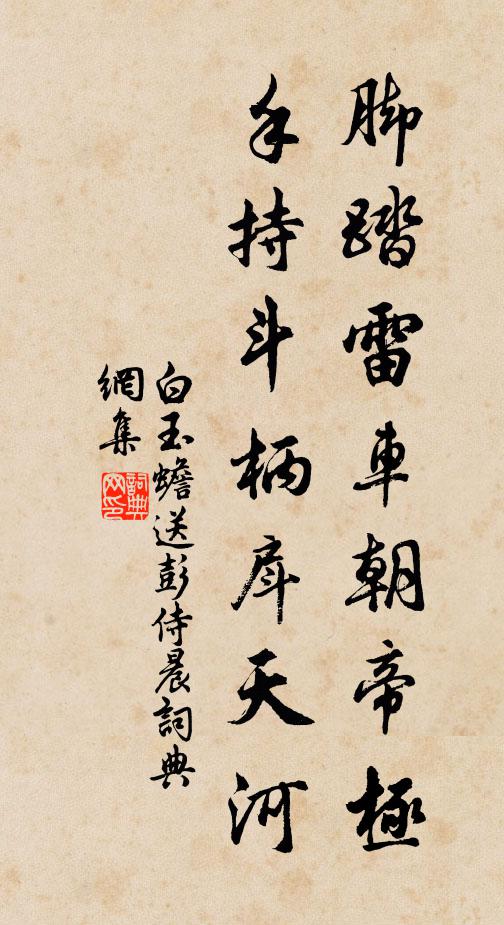 脚踏雷車朝帝極
手持斗柄戽天河
白玉蟾送彭侍晨詞典
網集
詞典
网印